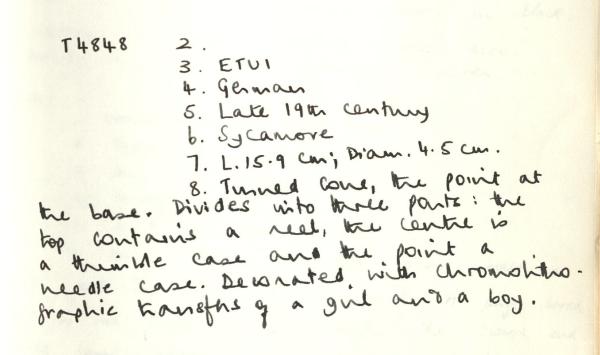 T4848 2.
3. ETUI
4. German
5. Late 19th century
6. Sycamore
7. L.15.9 cm; Diam. 4.5 cm.
8. Turned cone, the point at
the base. Divides into three parts: the
top contains a reel, the centre is
a thimble case and the point a
needle case. Decorated with chromolitho-
graphic transfers of a girl and a boy.